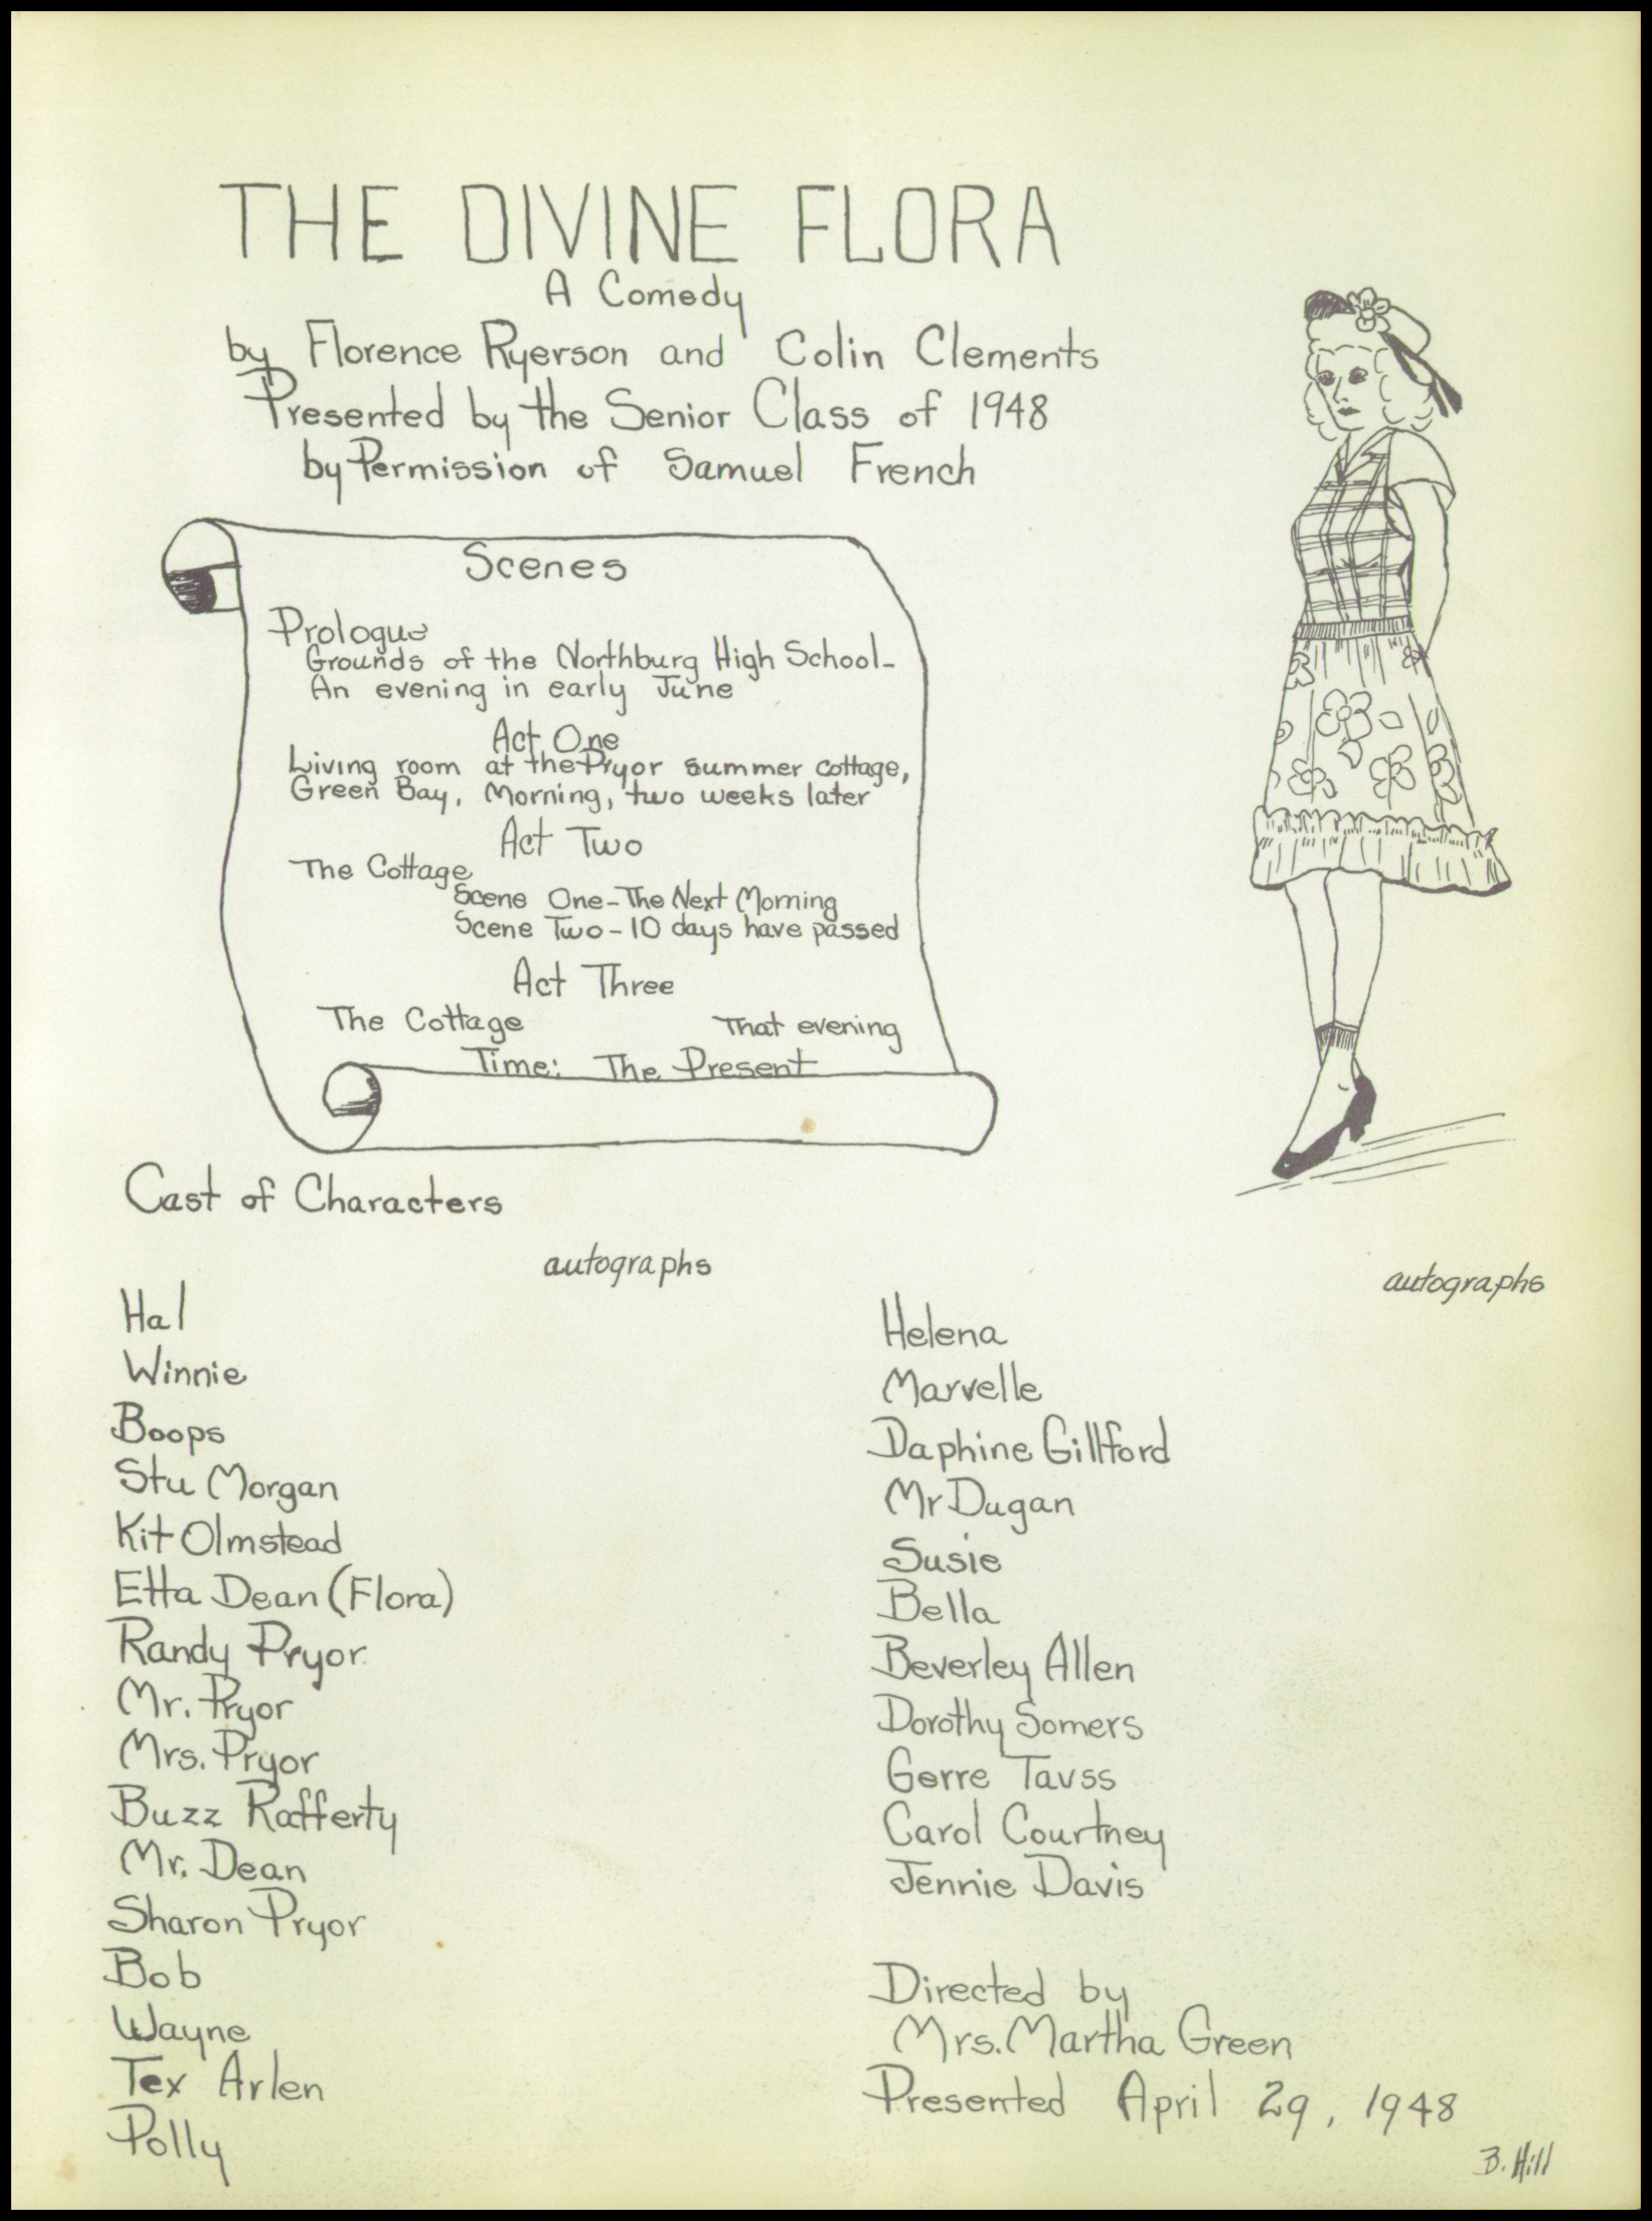 THE DIVINE FLORA
A Comedy
by Florence Ryerson and Colin Clements
Presented by the Senior Class of 1948
by Permission of Samuel French
Scenes
Prologue
Grounds of the Northburg High School-
An evening in early June
Act One
Living room at the Pryor summer cottage,
Green Bay, Morning, two weeks later
Act Two
The Cottage
Scene One-The Next Morning
Scene Two-10 days have passed
Act Three
The Cottage That evening
Time: The Present
Cast of Characters
autographs
Hal
Winnie
Boops
Stu Morgan
Kit Olmstead
Etta Dean (Flora)
Randy Pryor
Mr. Pryor
Mrs. Pryor
Buzz Rafferty
Mr. Dean
Sharon Pryor
Bob
Wayne
Tex Arlen
Polly
autographs
Helena
Marvelle
Daphine Gillford
Mr Dugan
Susie
Bella
Beverley Allen
Dorothy Somers
Gerre Tavss
Carol Courtney
Jennie Davis
Directed by
Mrs. Martha Green
Presented April 29, 1948
B. Hill